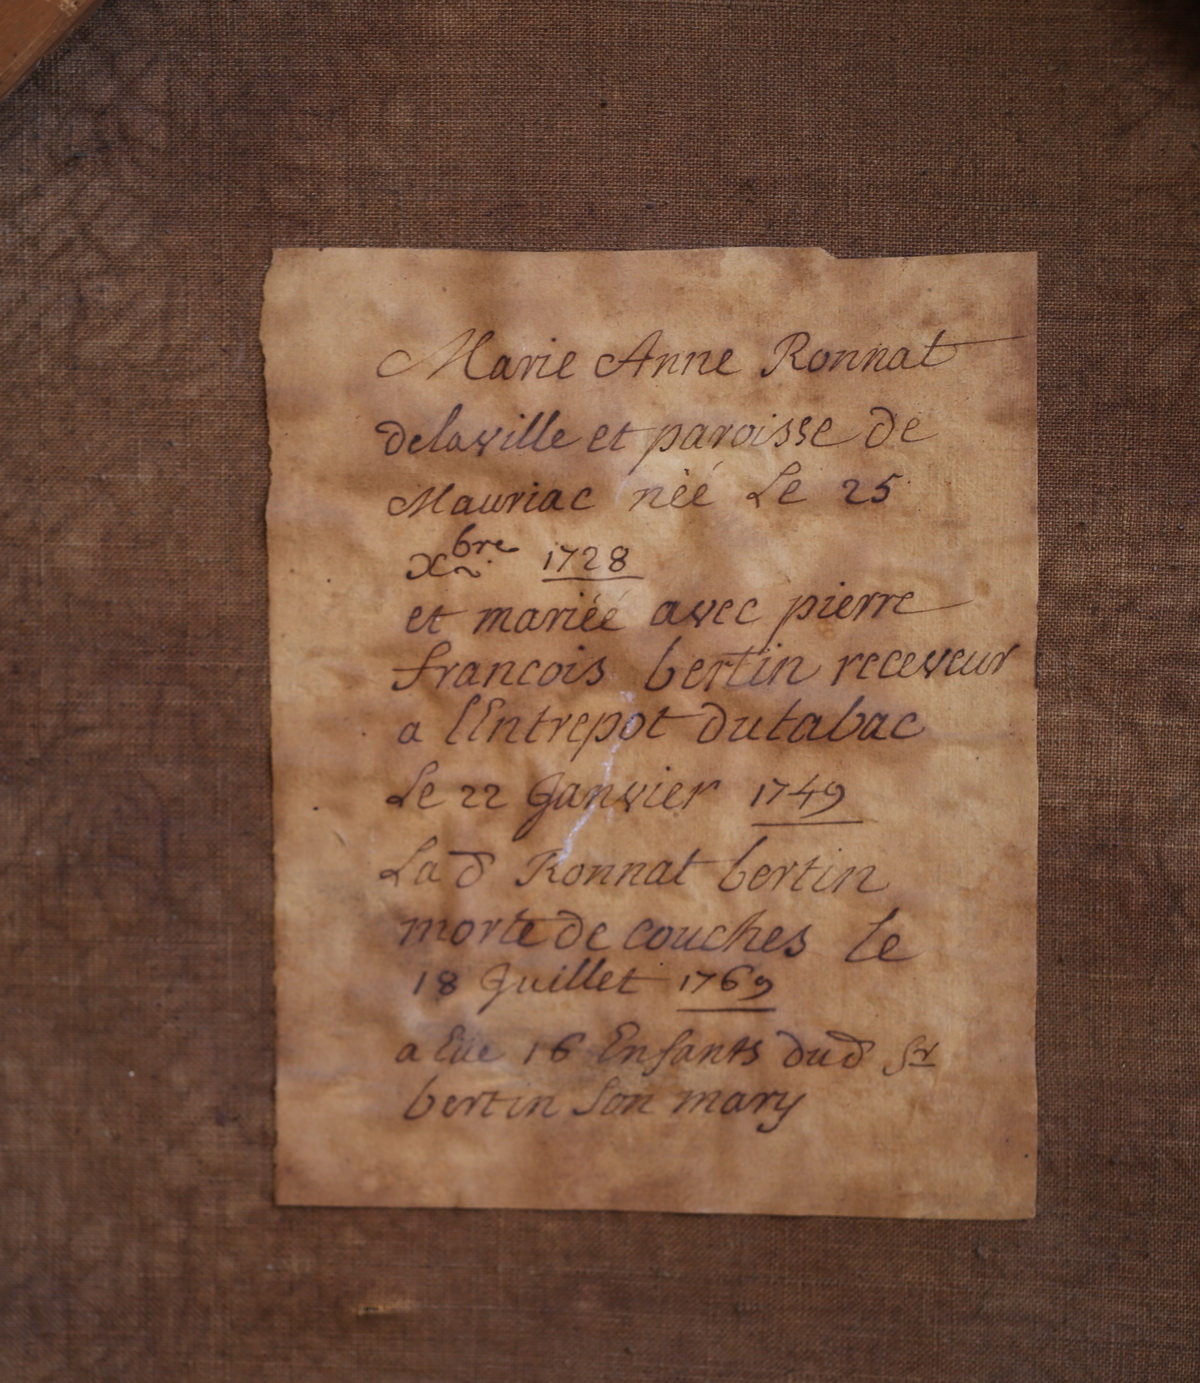 Marie Anne Ronnat
delaville et paroisse de
Mauriac néé Le 25
Xbre 1728
et mariéé avec pierre
francois bertin receveur
a lEntrepot dutabac
Le 22 Janvier 1749
La d Ronnat bertin
morte de couches le
18 Juillet 1769
a Eüe 16 Enfants dud Sr
bertin Son mary